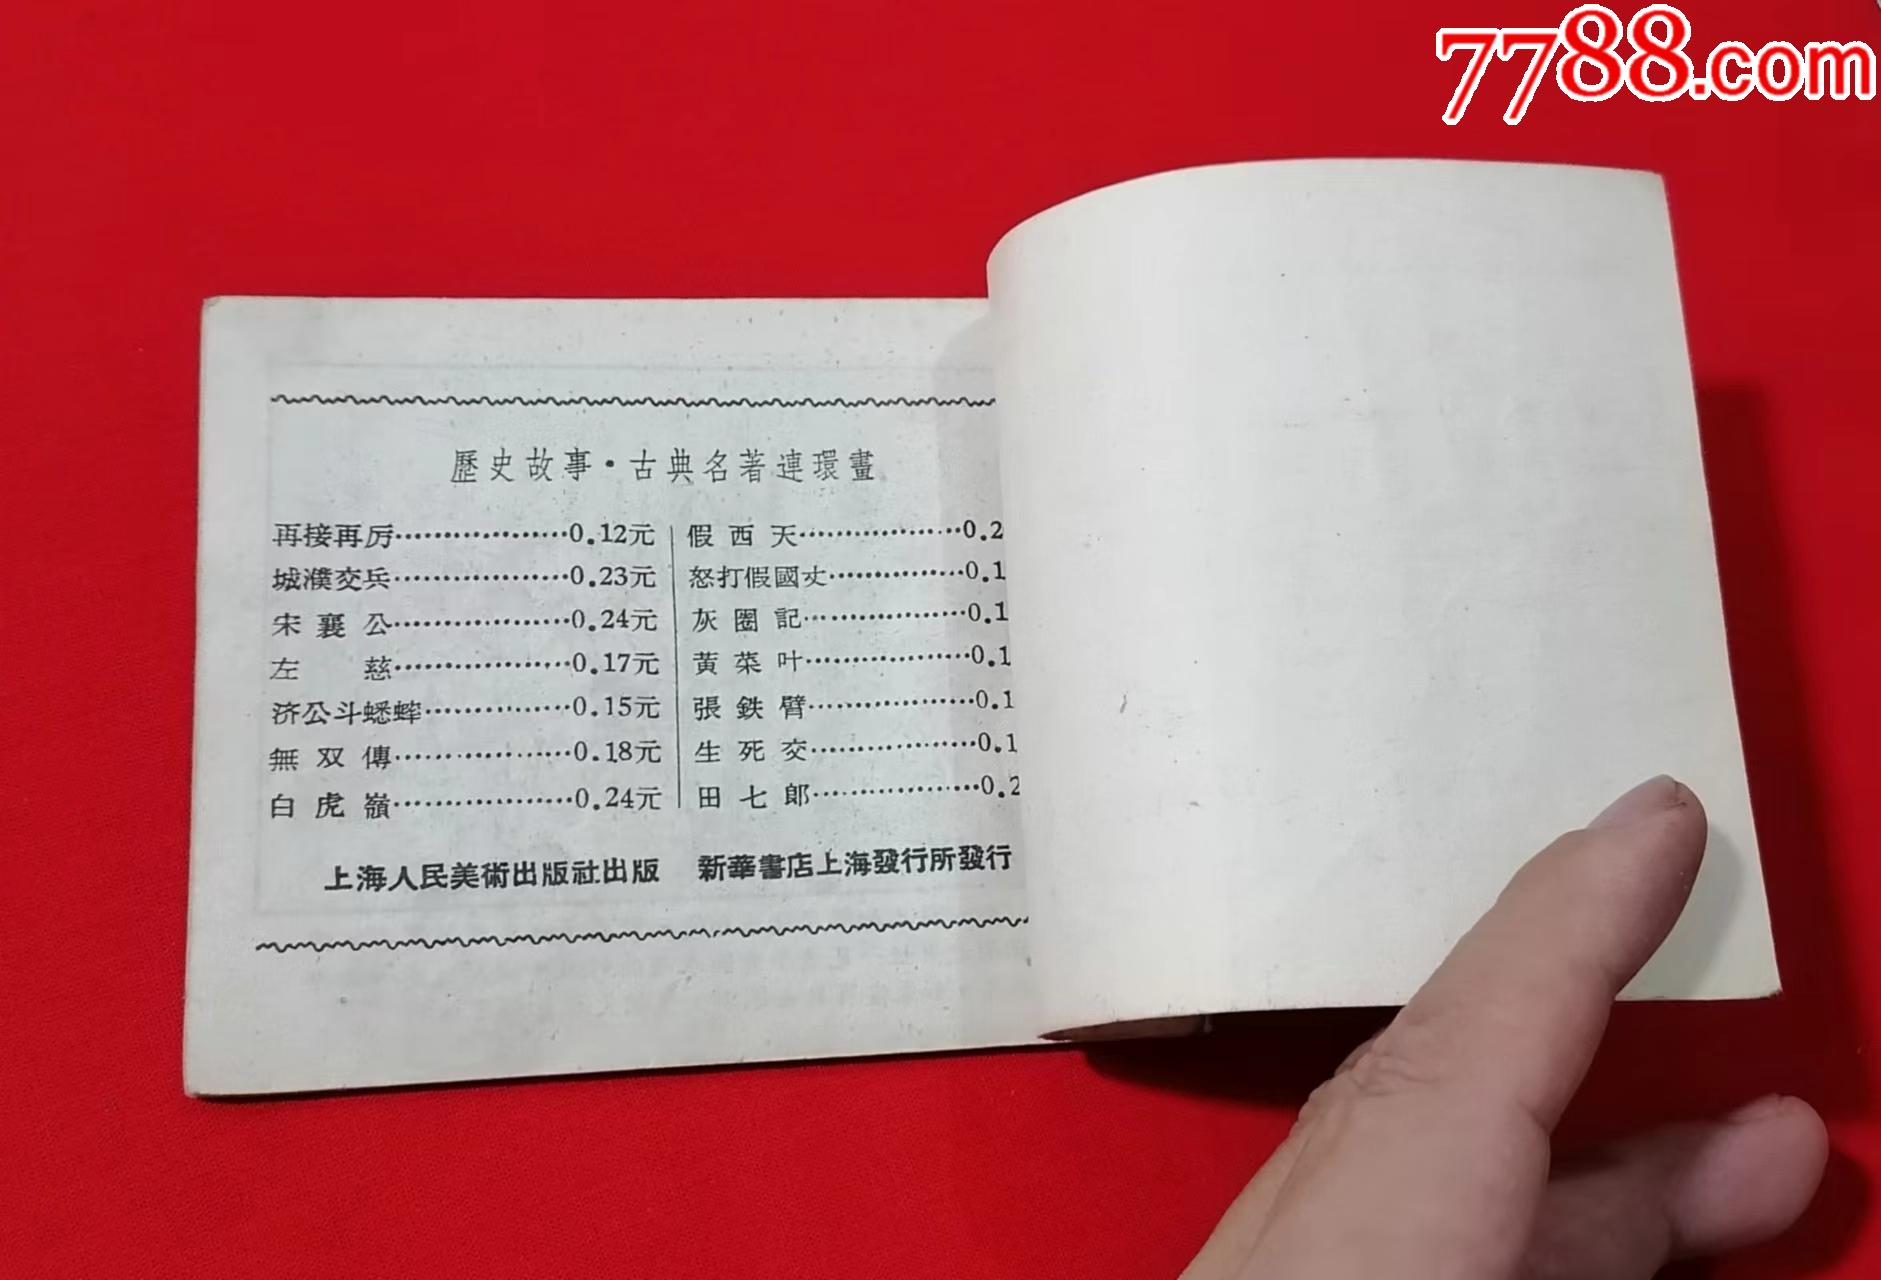 7788.com
歷史故事·古典名著連環畫
再接再厉………………0.12元
城濮交兵………………0.23元
宋襄公………………0.24元
左慈………………0.17元
济公斗蟋蟀……………0.15元
無双傳………………0.18元
白虎嶺………………0.24元
假西天………………0.2
怒打假國丈……………0.1
灰圈記………………0.1
黃菜叶………………0.1
張鉄臂………………0.1
生死交………………0.1
田七郎………………0.2
上海人民美術出版社出版 新華書店上海發行所發行